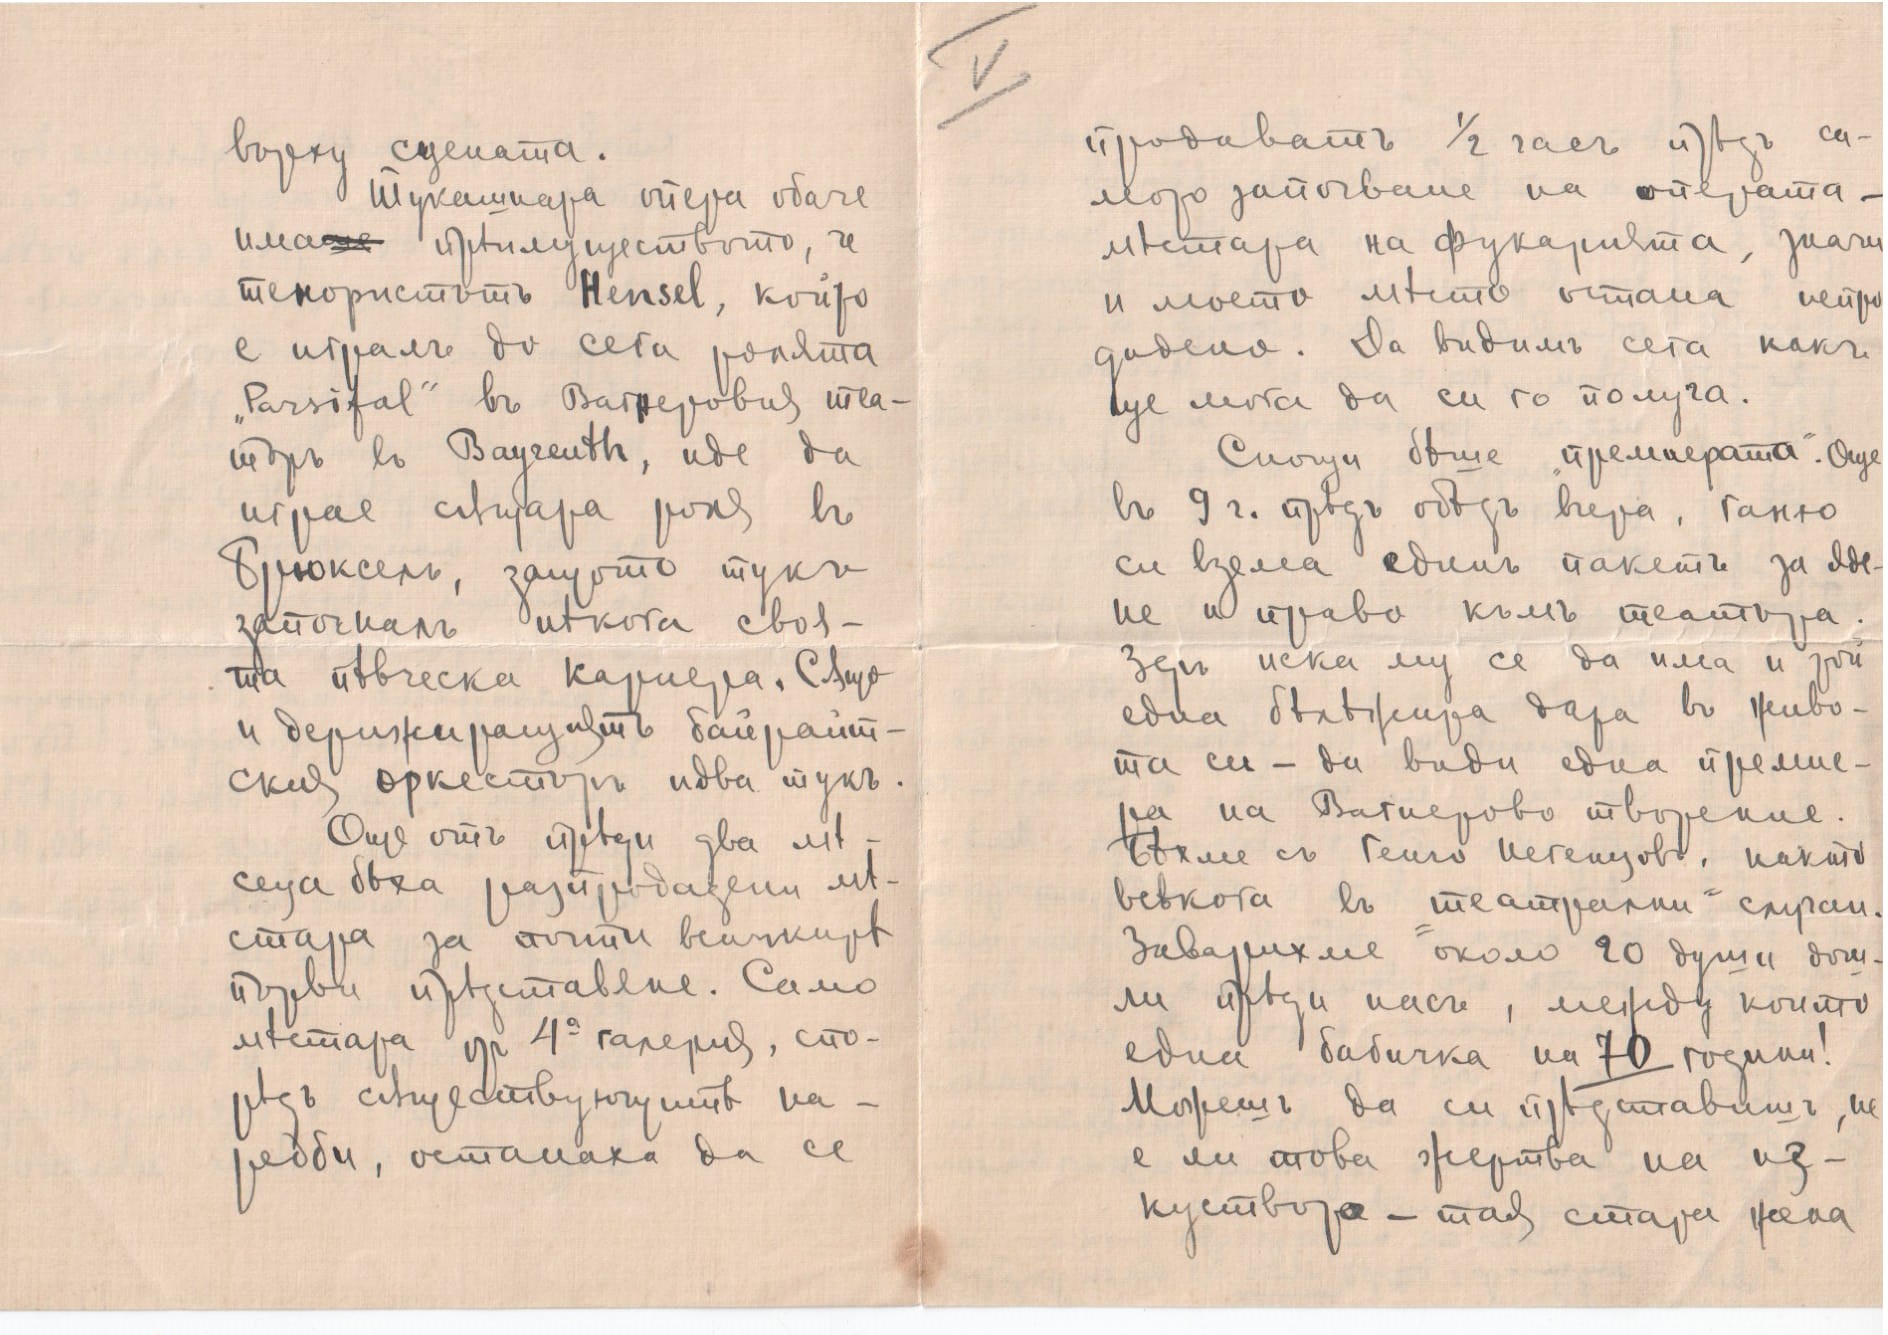 V
върху сцената.
Тукашната опера обаче
има прѣимуществото, че
тенористътъ Hensel, който
е игралъ до сега ролята
„Parsifal“ въ Вагнеровия теа-
търъ въ Bayreuth, иде да
играе сѫщата роля въ
Брюкселъ, защото тукъ
започналъ нѣкога своя-
та пѣвческа кариера. Сѫщо
и дерижиращиятъ байройт-
ския оркестъръ идва тукъ.
Още отъ прѣди два мѣ-
сеца бѣха разпродадени мѣ-
стата за почти всичкитѣ
първи прѣдставлене. Само
мѣстата изъ 4ª галерия, спо-
рѣдъ сѫществующитѣ на-
редби, останаха да се
продаватъ ½ часъ прѣдъ са-
мото започване на операта —
мѣстата на фукарията, значи
и моето мѣсто остана непро
дадено. Да видимъ сега какъ
ще мога да си го получа.
Снощи бѣше „премиерата“. Още
въ 9 ч. прѣдъ обѣдъ вчера, ганю
си взема единъ пакетъ за яде-
не и право къмъ театъра.
Зеръ иска му се да има и той
една бѣлѣжита дата въ живо-
та си — да види една премие-
ра на Вагнерово творение.
Бѣхме съ Генчо , както
всѣкога въ „театрални“ случаи.
Заварихме около 20 души дош-
ли прѣди насъ, между които
една бабичка на 70 години!
Можешъ да си прѣдставишъ, не
е ли това жертва на из-
куството — тая стара жена